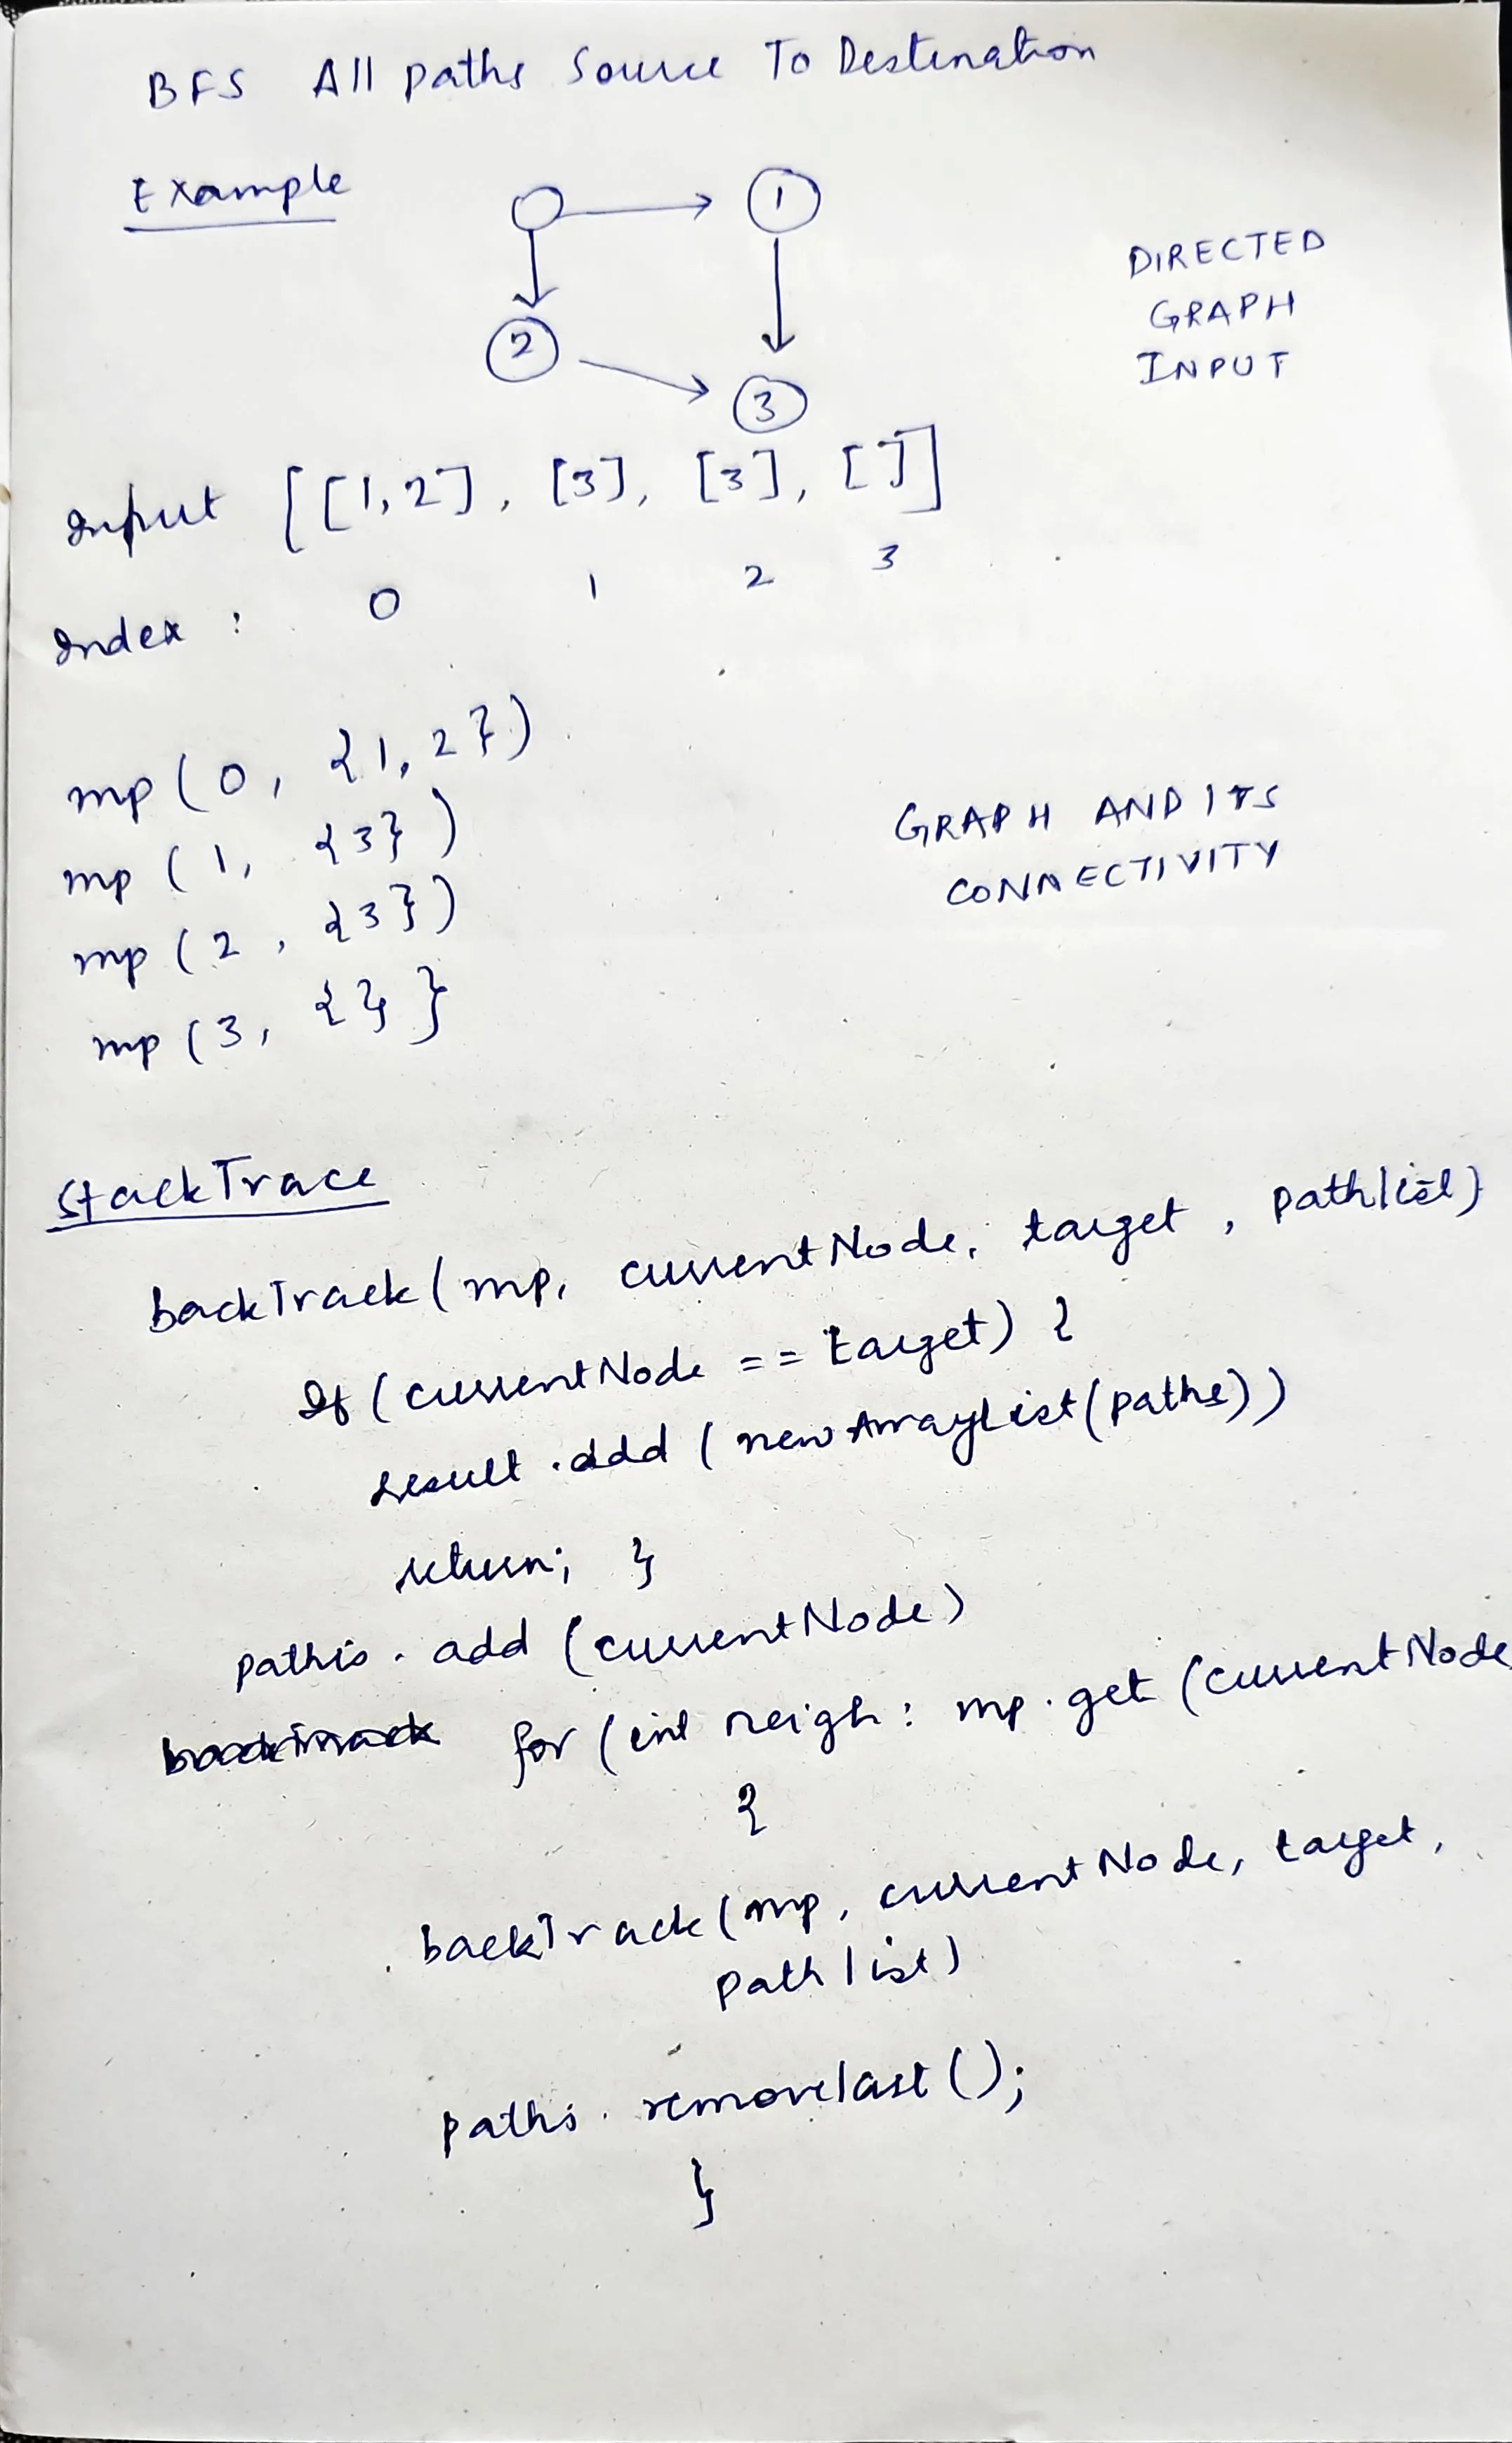 BFS All paths Source To Destination
Example
1
2
3
DIRECTED
GRAPH
INPUT
Input [[1,2], [3], [3], []]
Index : 0 1 2 3
mp (0, {1,2})
mp (1, {3})
mp (2, {3})
mp (3, {}}
GRAPH AND ITS
CONNECTIVITY
StackTrace
backTrack (mp, currentNode, target, pathlist)
If (currentNode == target) {
result.add (new ArrayList(paths))
return; }
paths.add (currentNode)
for (int neigh : mp.get (currentNode
{
backTrack (mp, currentNode, target,
pathlist)
paths.removelast();
}